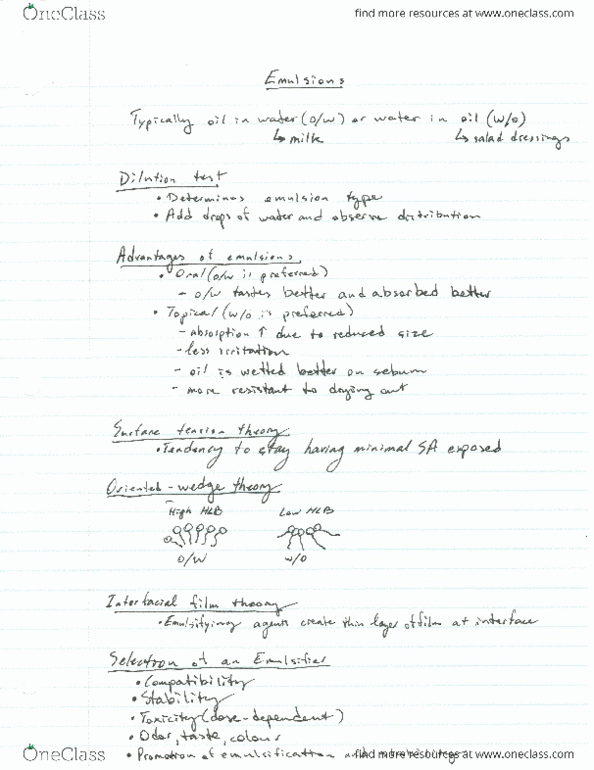 OneClass
find more resources at www.oneclass.com
Emulsions
Typically oil in water (o/w) or water in oil (w/o)
↳ milk ↳ salad dressings
Dilution test
• Determines emulsion type
• Add drops of water and observe distribution
Advantages of emulsions
• Oral (o/w is preferred)
- o/w tastes better and absorbed better
• Topical (w/o is preferred)
- absorption ↑ due to reduced size
- less irritation
- oil is wetted better on sebum
- more resistant to drying out
Surface tension theory
• Tendency to stay having minimal SA exposed
Oriented-wedge theory
High HLB Low HLB
O/W W/O
Interfacial film theory
• Emulsifying agents create thin layer of film at interface
Selection of an Emulsifier
• Compatibility
• Stability
• Toxicity (dose-dependent)
• Odor, taste, colour
• Promotion of emulsification
OneClass
find more resources at www.oneclass.com